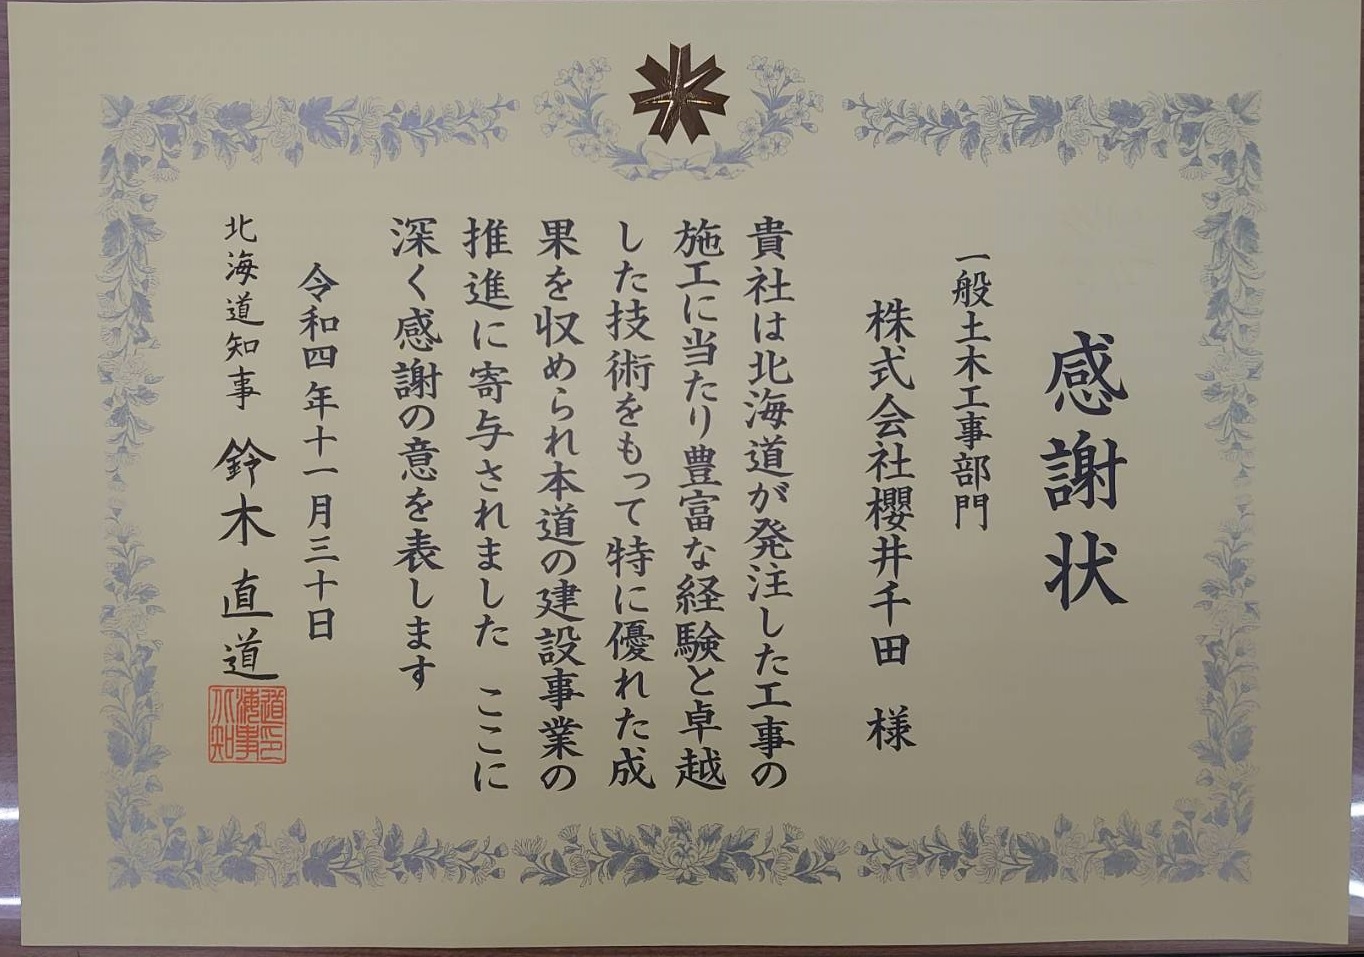 感謝状
一般土木工事部門
株式会社櫻井千田 様
貴社は北海道が発注した工事の
施工に当たり豊富な経験と卓越
した技術をもって特に優れた成
果を収められ本道の建設事業の
推進に寄与されました ここに
深く感謝の意を表します
令和四年十一月三十日
北海道知事 鈴木直道
道印
海事
北知